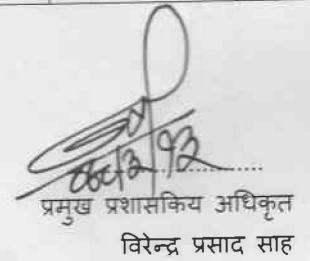 प्रमुख प्रशासकिय अधिकृत
विरेन्द्र प्रसाद साह